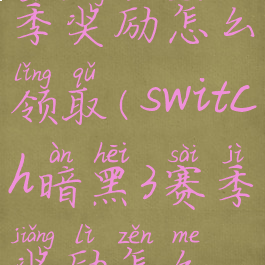 季奖励怎么
lǐng qǔ
领取(switc
àn hēi sài jì
h暗黑3赛季
jiǎng lì zěn me
奖励怎么